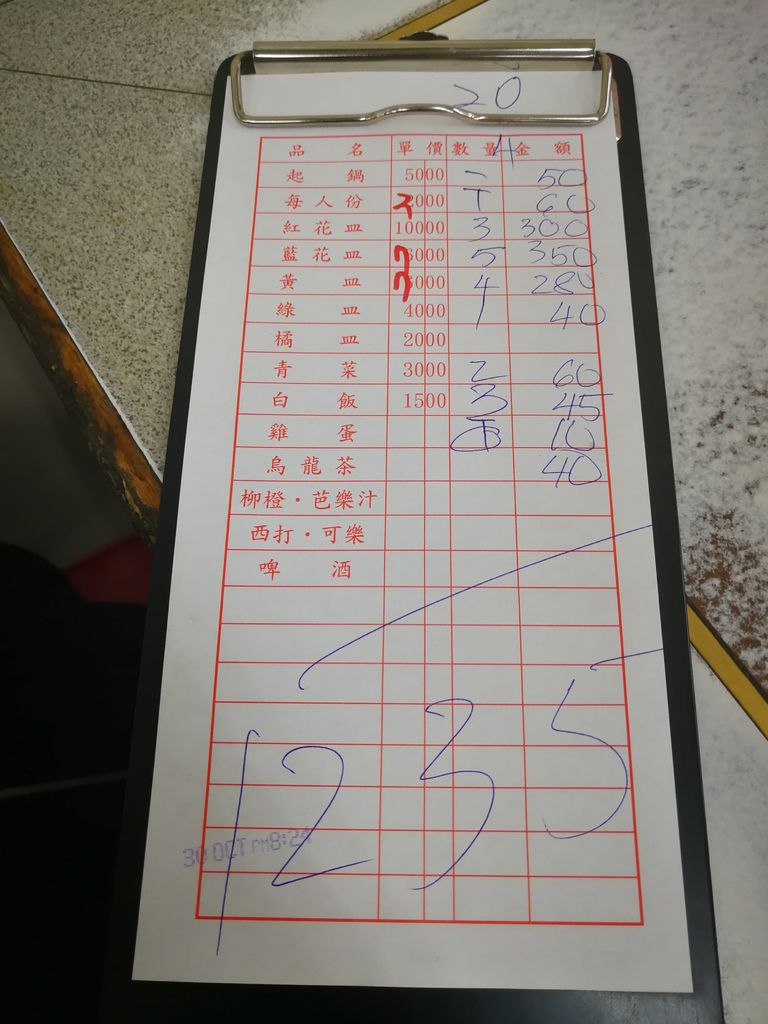 20
品 名 單 價 數 量 金 額
4
起 鍋 5000 50
每 人 份 000 T 60
紅 花 皿 10000 3 300
藍 花 皿 7000 5 350
黃 皿 7000 4 280
綠 皿 4000 1 40
橘 皿 2000
青 菜 3000 2 60
白 飯 1500 3 45
雞 蛋 10
烏 龍 茶 40
柳橙・芭樂汁
西打・可樂
啤 酒
1235
30 OCT PM8:24